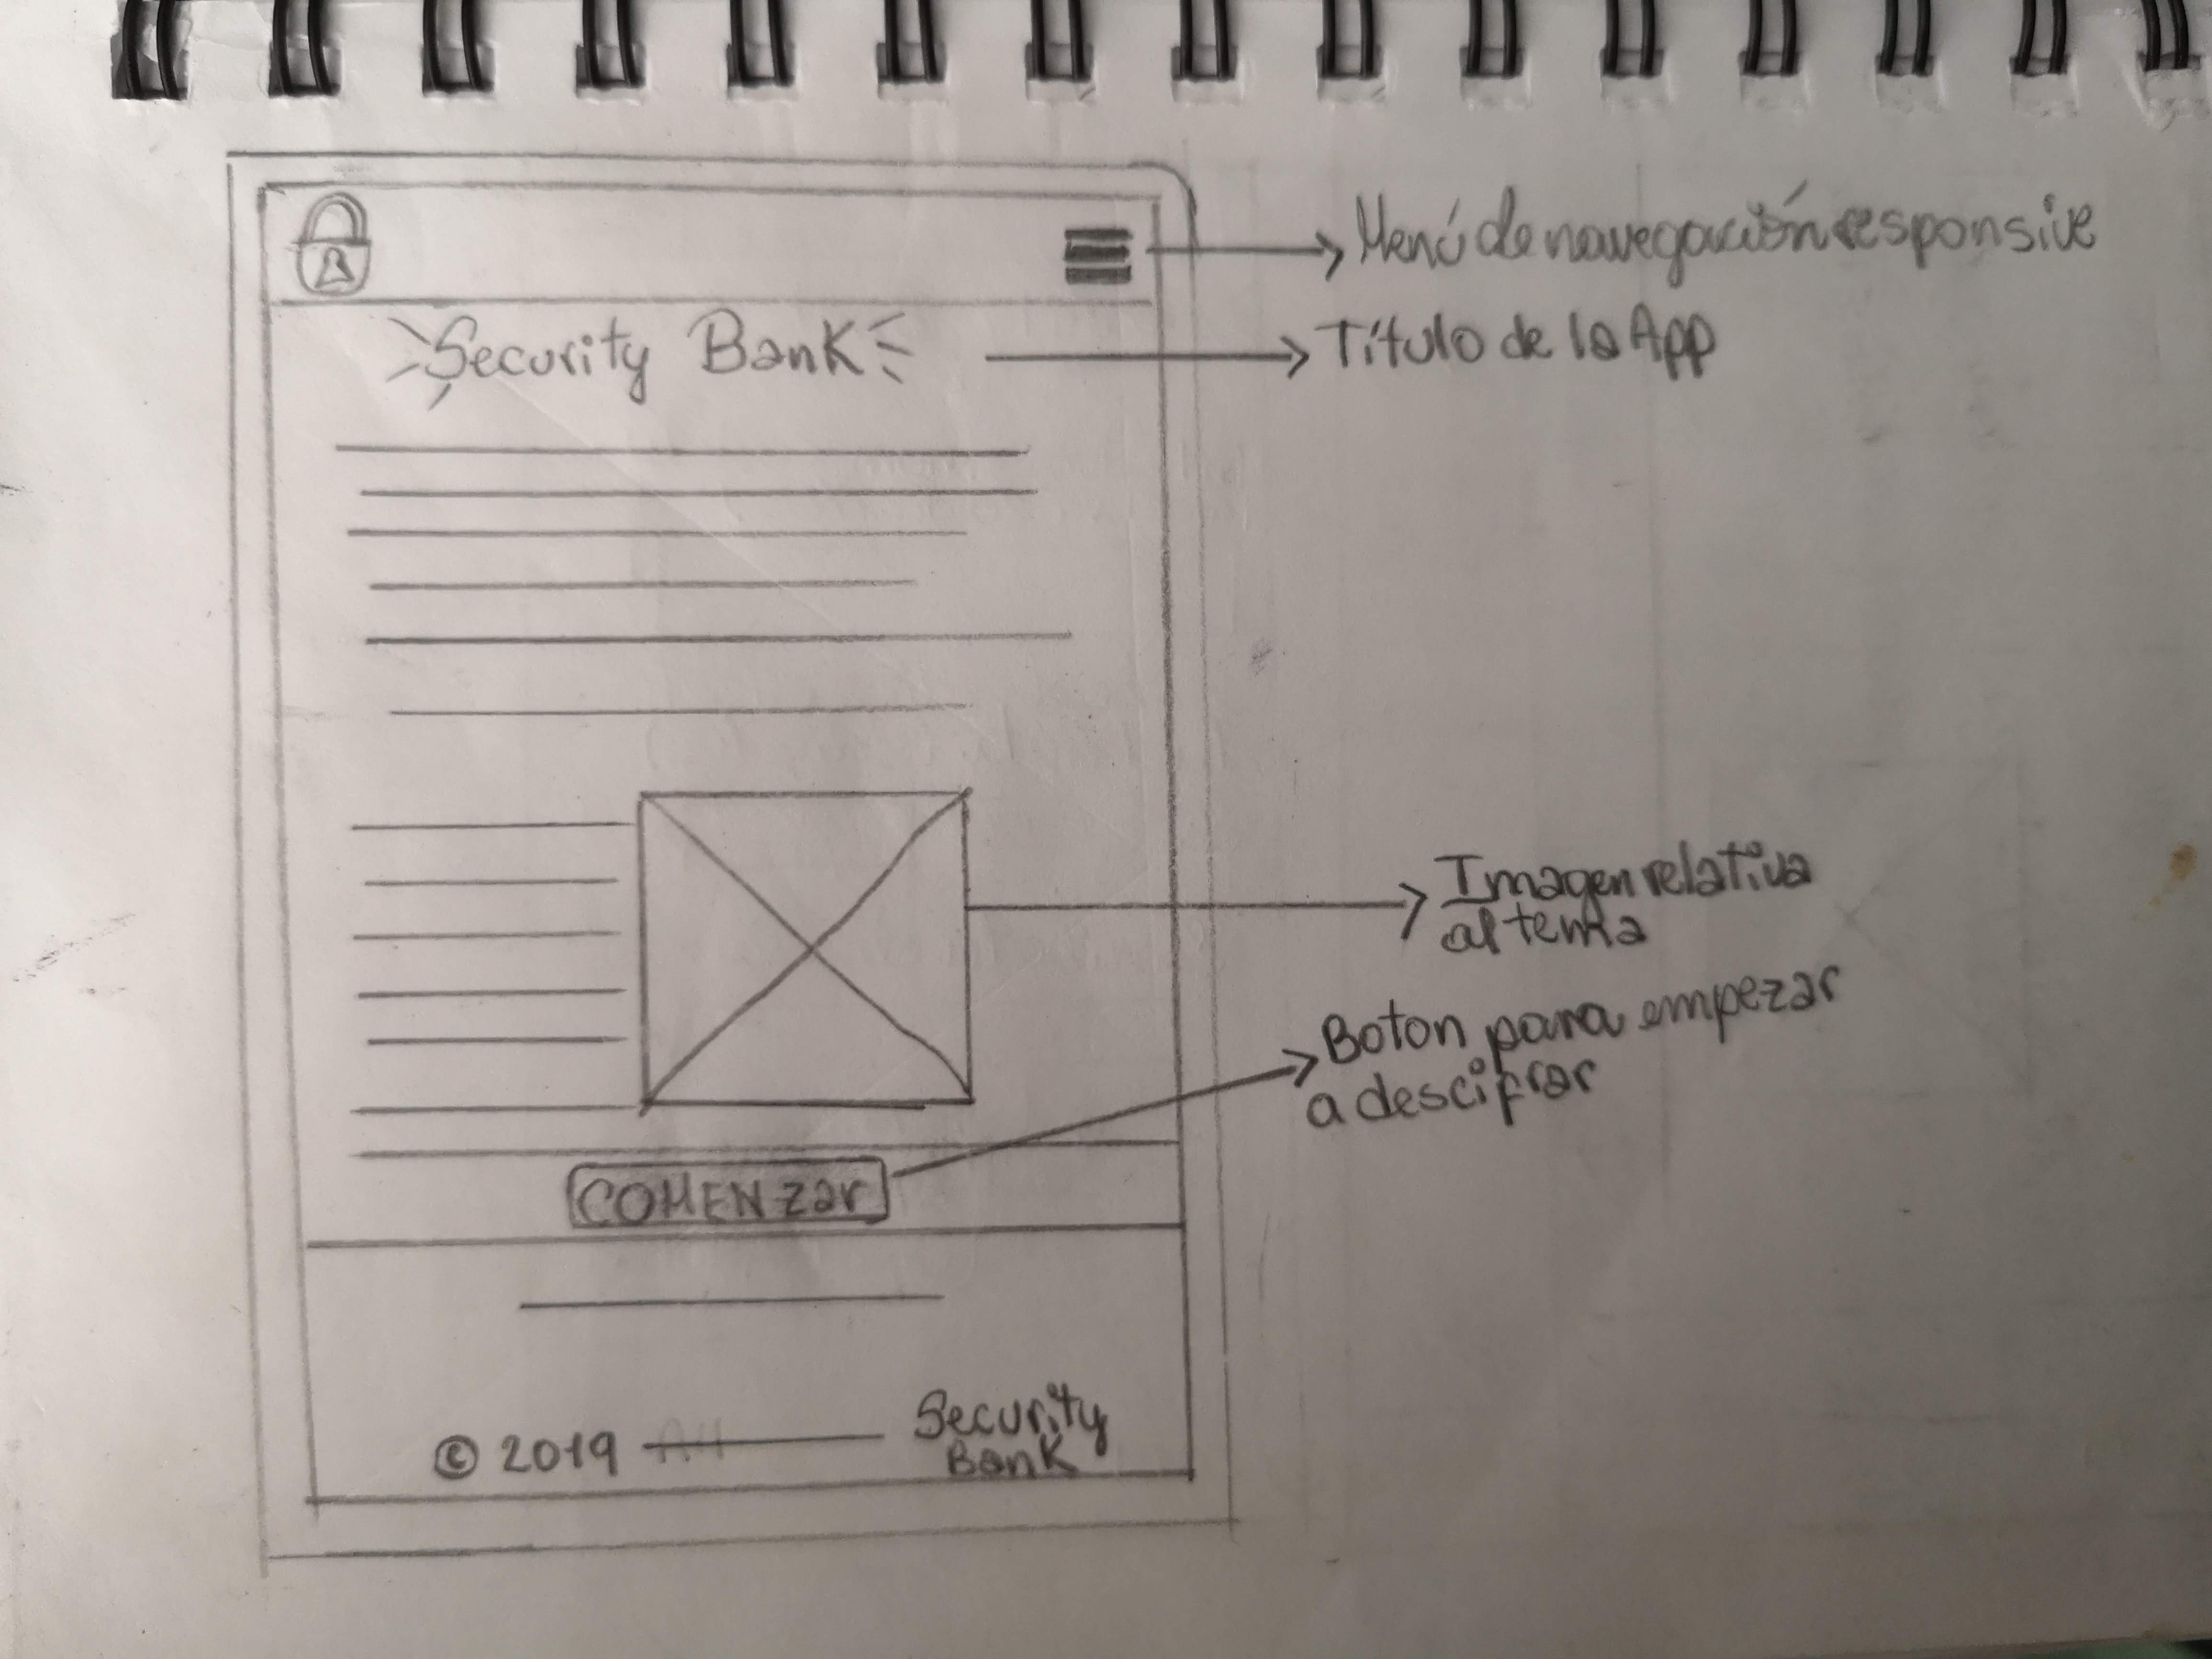 Menú de navegación responsive
Security Bank
Título de la App
Imagen relativa
al tema
Boton para empezar
a descifrar
COMENZar
© 2019
Security
Bank